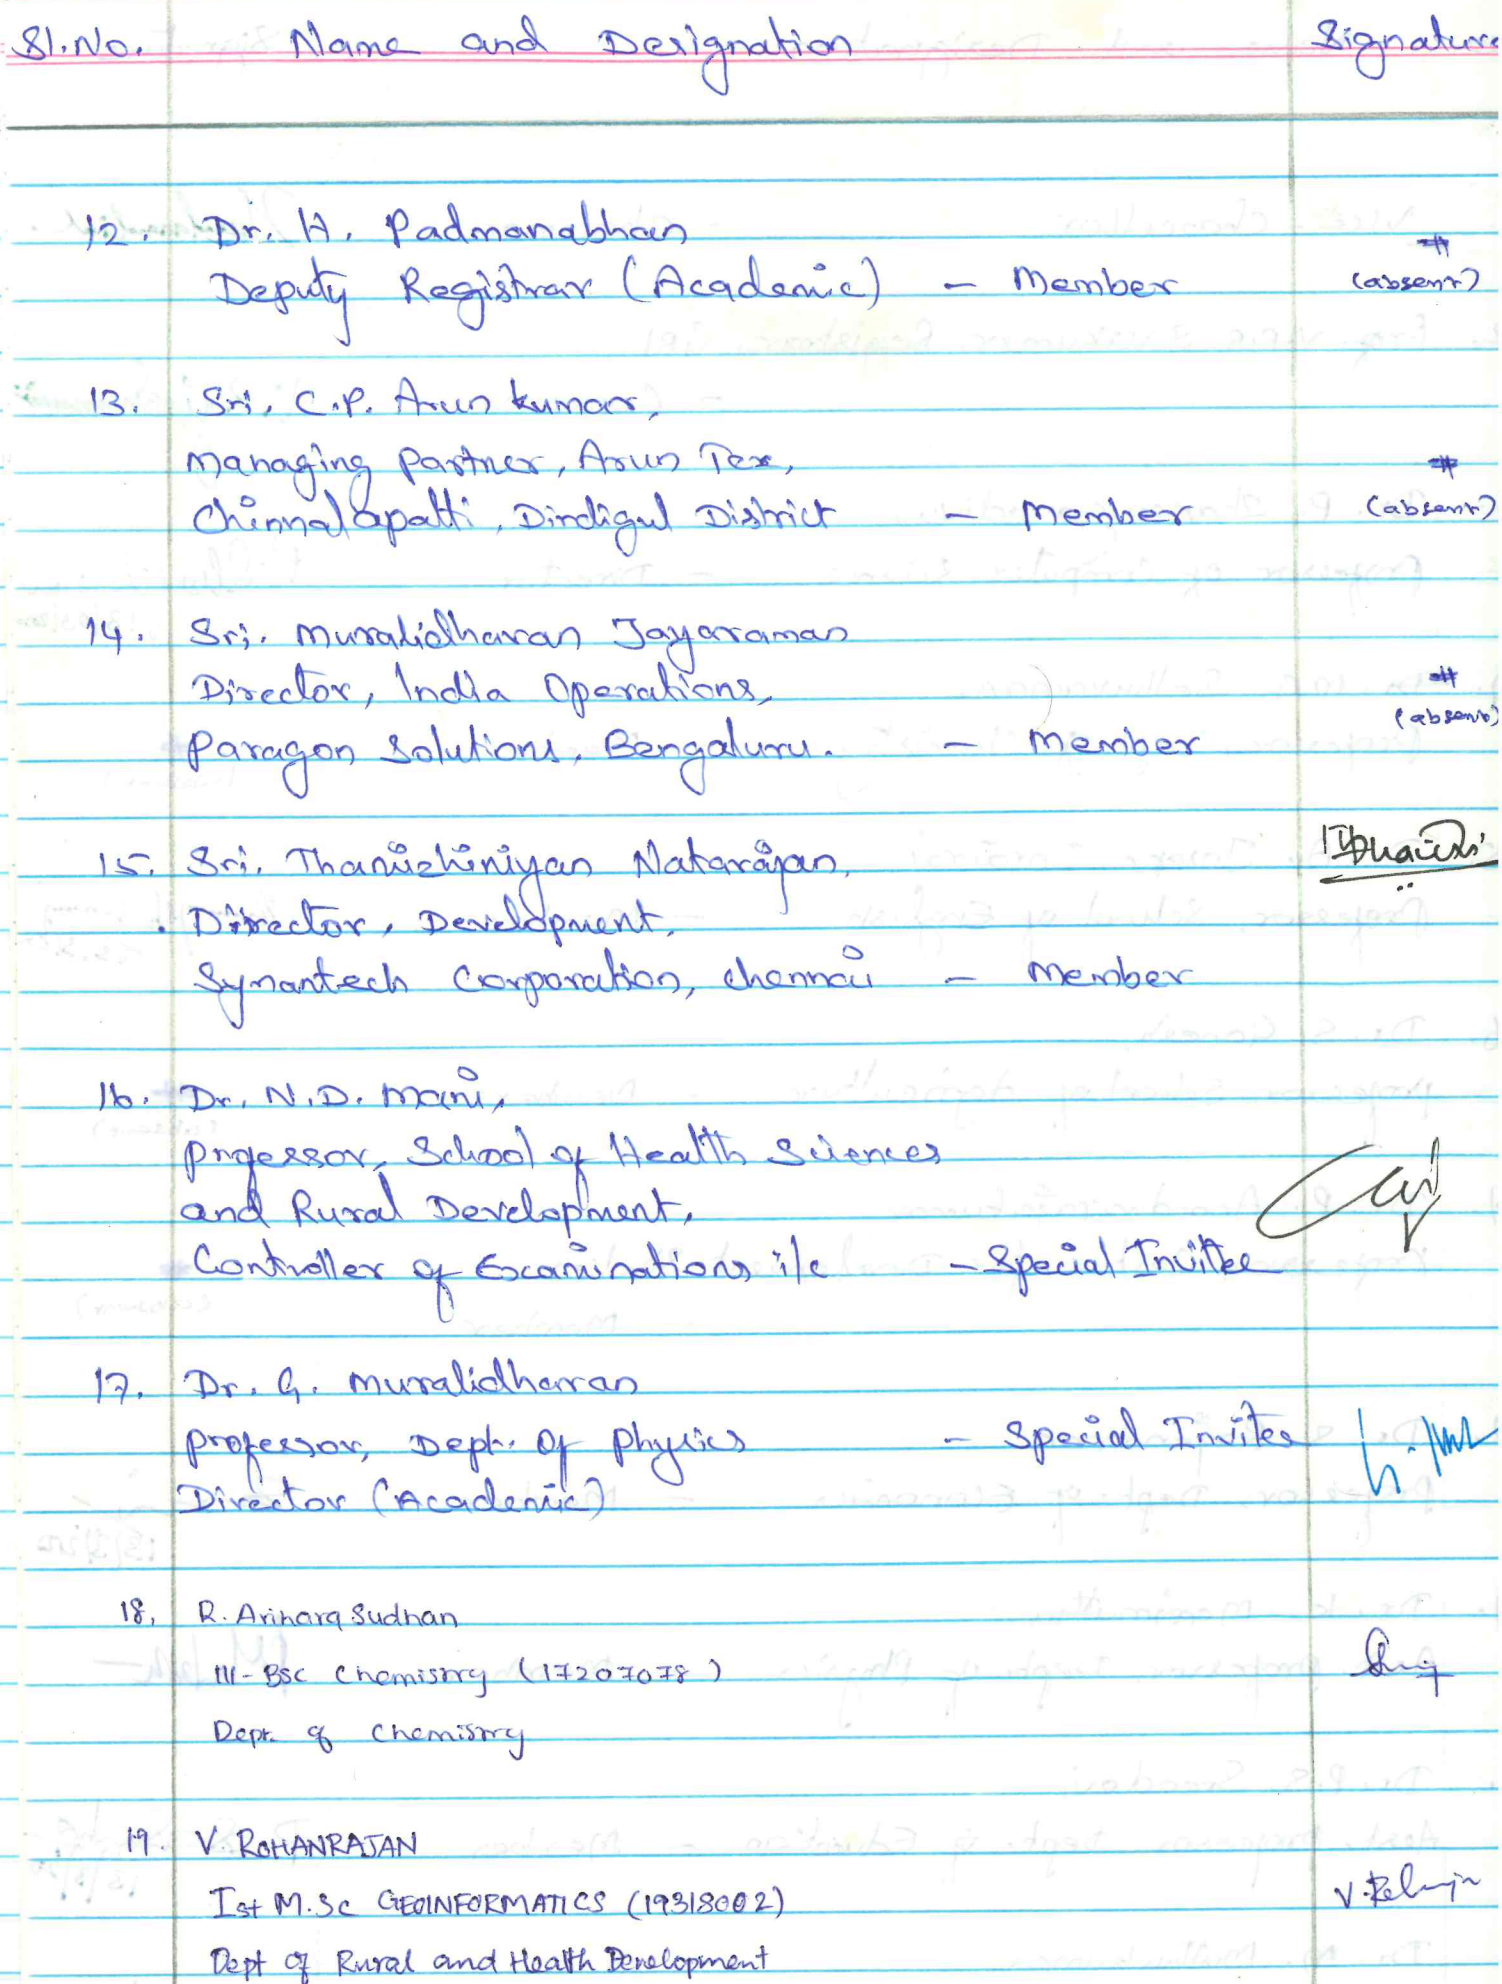 Sl.No. Name and Designation Signature
12. Dr. H. Padmanabhan
Deputy Registrar (Academic) - Member #
(absent)
13. Sri. C.P. Arun kumar,
Managing Partner, Arun Tex, #
Chinnalapatti, Dindigul District - Member (absent)
14. Sri. Muralidharan Jayaraman
Director, India Operations, #
Paragon Solutions, Bengaluru. - Member (absent)
15. Sri. Thamizhiniyan Natarajan,
Director, Development,
Symantech Corporation, Chennai - Member
16. Dr. N.D. Mani,
Professor, School of Health Sciences
and Rural Development,
Controller of Examinations i/c - Special Invitee
17. Dr. G. Muralidharan
Professor, Dept. of Physics - Special Invitee
Director (Academic)
18. R. Arihara Sudhan
III - BSc Chemistry (17207078)
Dept. of Chemistry
19. V ROHANRAJAN
Ist M.Sc GEOINFORMATICS (19318002)
Dept of Rural and Health Development